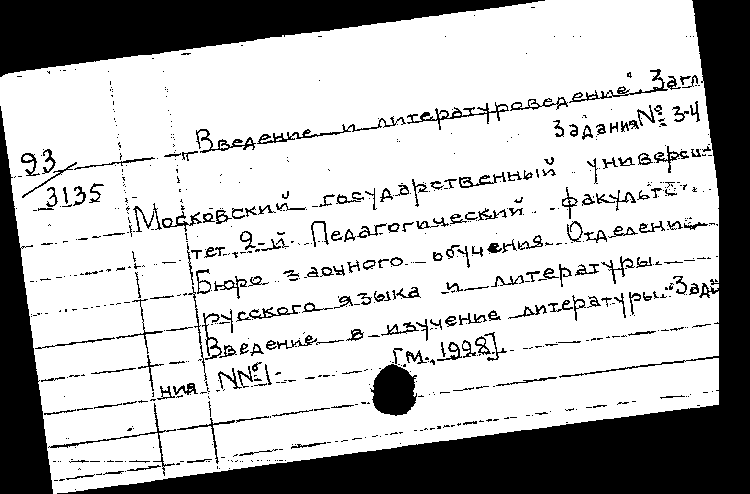 „Введение и литературоведение". Загл.
Задания № 3-4
93
3135
Московский государственный универси-
тет, 2-й. Педагогический факульте..
Бюро заочного обучения. Отделение
русского языка и литературы.
Введение в изучение литературы. "Зада
ния NN° 1- [М., 1928].